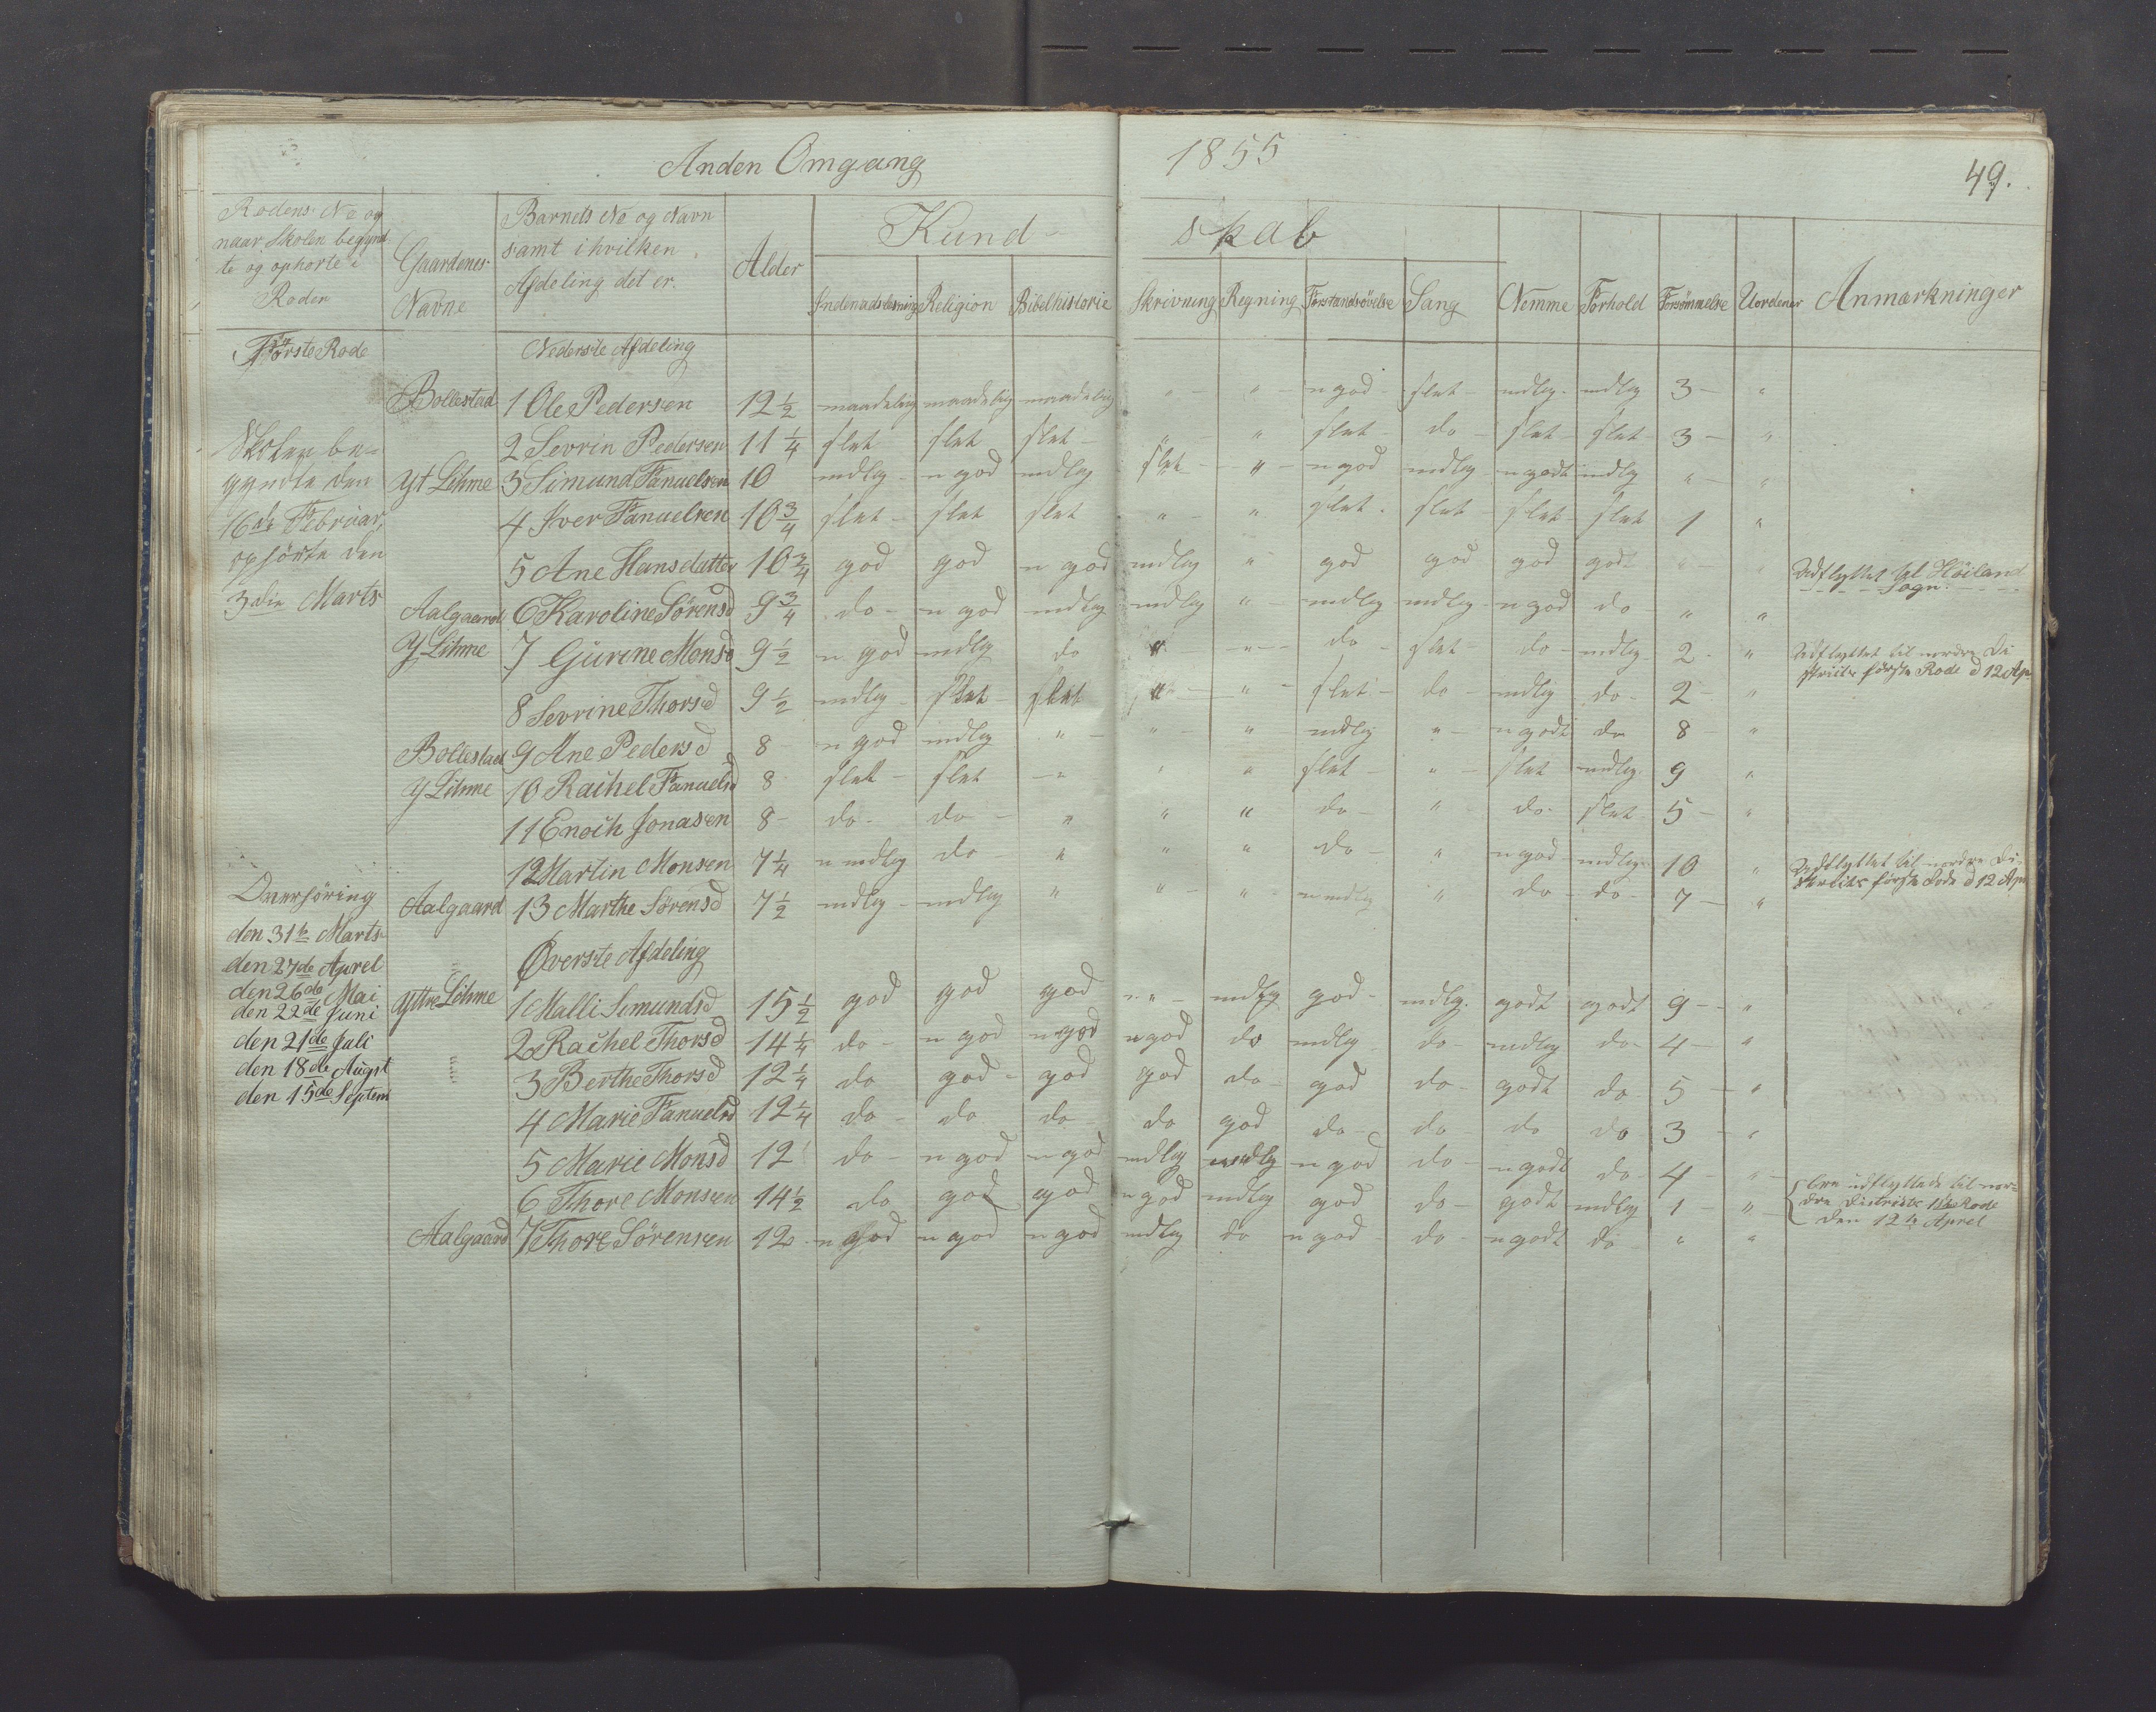 Anden Omgang 1855 49.
Rodens No og naar Skolen begyndte og ophørte i Roden | Gaardenes Navne | Barnets No og Navn samt i hvilken Afdeling det er. | Alder | Kundskab | Nemme | Forhold | Forsømmelse | Uordener | Anmærkninger
Indenadslæsning | Religion | Bibelhistorie | Skrivning | Regning | Forstandsøvelse | Sang
Første Rode Nederste Afdeling
Bollestad 1 Ole Pedersen 12 1/2 maadelig maadelig maadelig " " n god slet mdlg. mdlg 3 "
2 Sevrin Pedersen 11 1/4 slet slet slet " " slet do slet slet 3 "
Yt Lihme 3 Simund Fanuelsen 10 mdlg n god mdlg slet " n god mdlg n godt mdlg " "
4 Iver Fanuelsen 10 3/4 slet slet slet " " slet slet slet slet 1 "
5 Ane Hansdatter 10 3/4 god god n god mdlg " god god god godt " " Udflyttet til Höiland Sogn.
Aalgaard 6 Karoline Sørensd 9 3/4 do n god mdlg mdlg " mdlg mdlg n god do " "
Y Lihme 7 Gurine Monsd 9 1/2 n god mdlg do " " do slet do mdlg 2 " Udflyttet til nordre Distrikts første Rode d 12 Ap
8 Sevrine Thorsd 9 1/2 mdlg slet slet " " slet do mdlg do 2 "
Bollestad 9 Ane Pedersd 8 n god mdlg " " " mdlg " n godt do 8 "
Y Lihme 10 Rachel Fanuelsd 8 slet slet " " " slet " slet mdlg. 9 "
11 Enoch Jonasen 8 do do " " " do " do slet 5 "
12 Martin Monsen 7 1/4 n mdlg do " " " do " n god mdlg 10 " Udflyttet til nordre Distrikts første Rode d 12 Apr
Aalgaard 13 Marthe Sørensd 7 1/2 mdlg mdlg " " " n mdlg " do do 7 "
Skolen be=
gyndte den
16de Februar,
ophörte den
3die Marts
Overhöring
den 31te Marts
den 27de Aprel
den 26de Mai
den 22de Juni
den 21de Juli
den 18de Augst
den 15de Septem
Øverste Afdeling
Yttre Lihme 1 Malli Simundsd 15 1/2 god god god " mdlg god mdlg. godt godt 9 "
2 Rachel Thorsd 14 1/4 do n god n god n god do mdlg do mdlg do 4 "
3 Berthe Thorsd 12 1/4 do god god god do god do godt do 5 "
4 Marie Fanuelsd 12 1/4 do do do do god do do do do 3 "
5 Marie Monsd 12 do n god n god mdlg mdlg n god do n godt do 4 "
6 Thore Monsen 14 1/2 do god god n god mdlg god do godt mdlg 1 " Ere udflyttede til nordre Distrikts 1ste Rode den 12te Aprel
Aalgaard 7 Thore Sørensen 12 n god n god n god mdlg do n god do n godt do " "